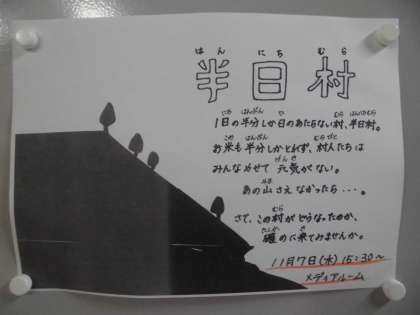 半日村
1日の半分しか日のあたらない村、半日村。
お米も半分しかとれず、村人たちは
みんなやせて元気がない。
あの山さえなかったら・・・。
さて、この村がどうなったのか、
確めに来てみませんか。
11月7日(水)15:30~
メディアルーム